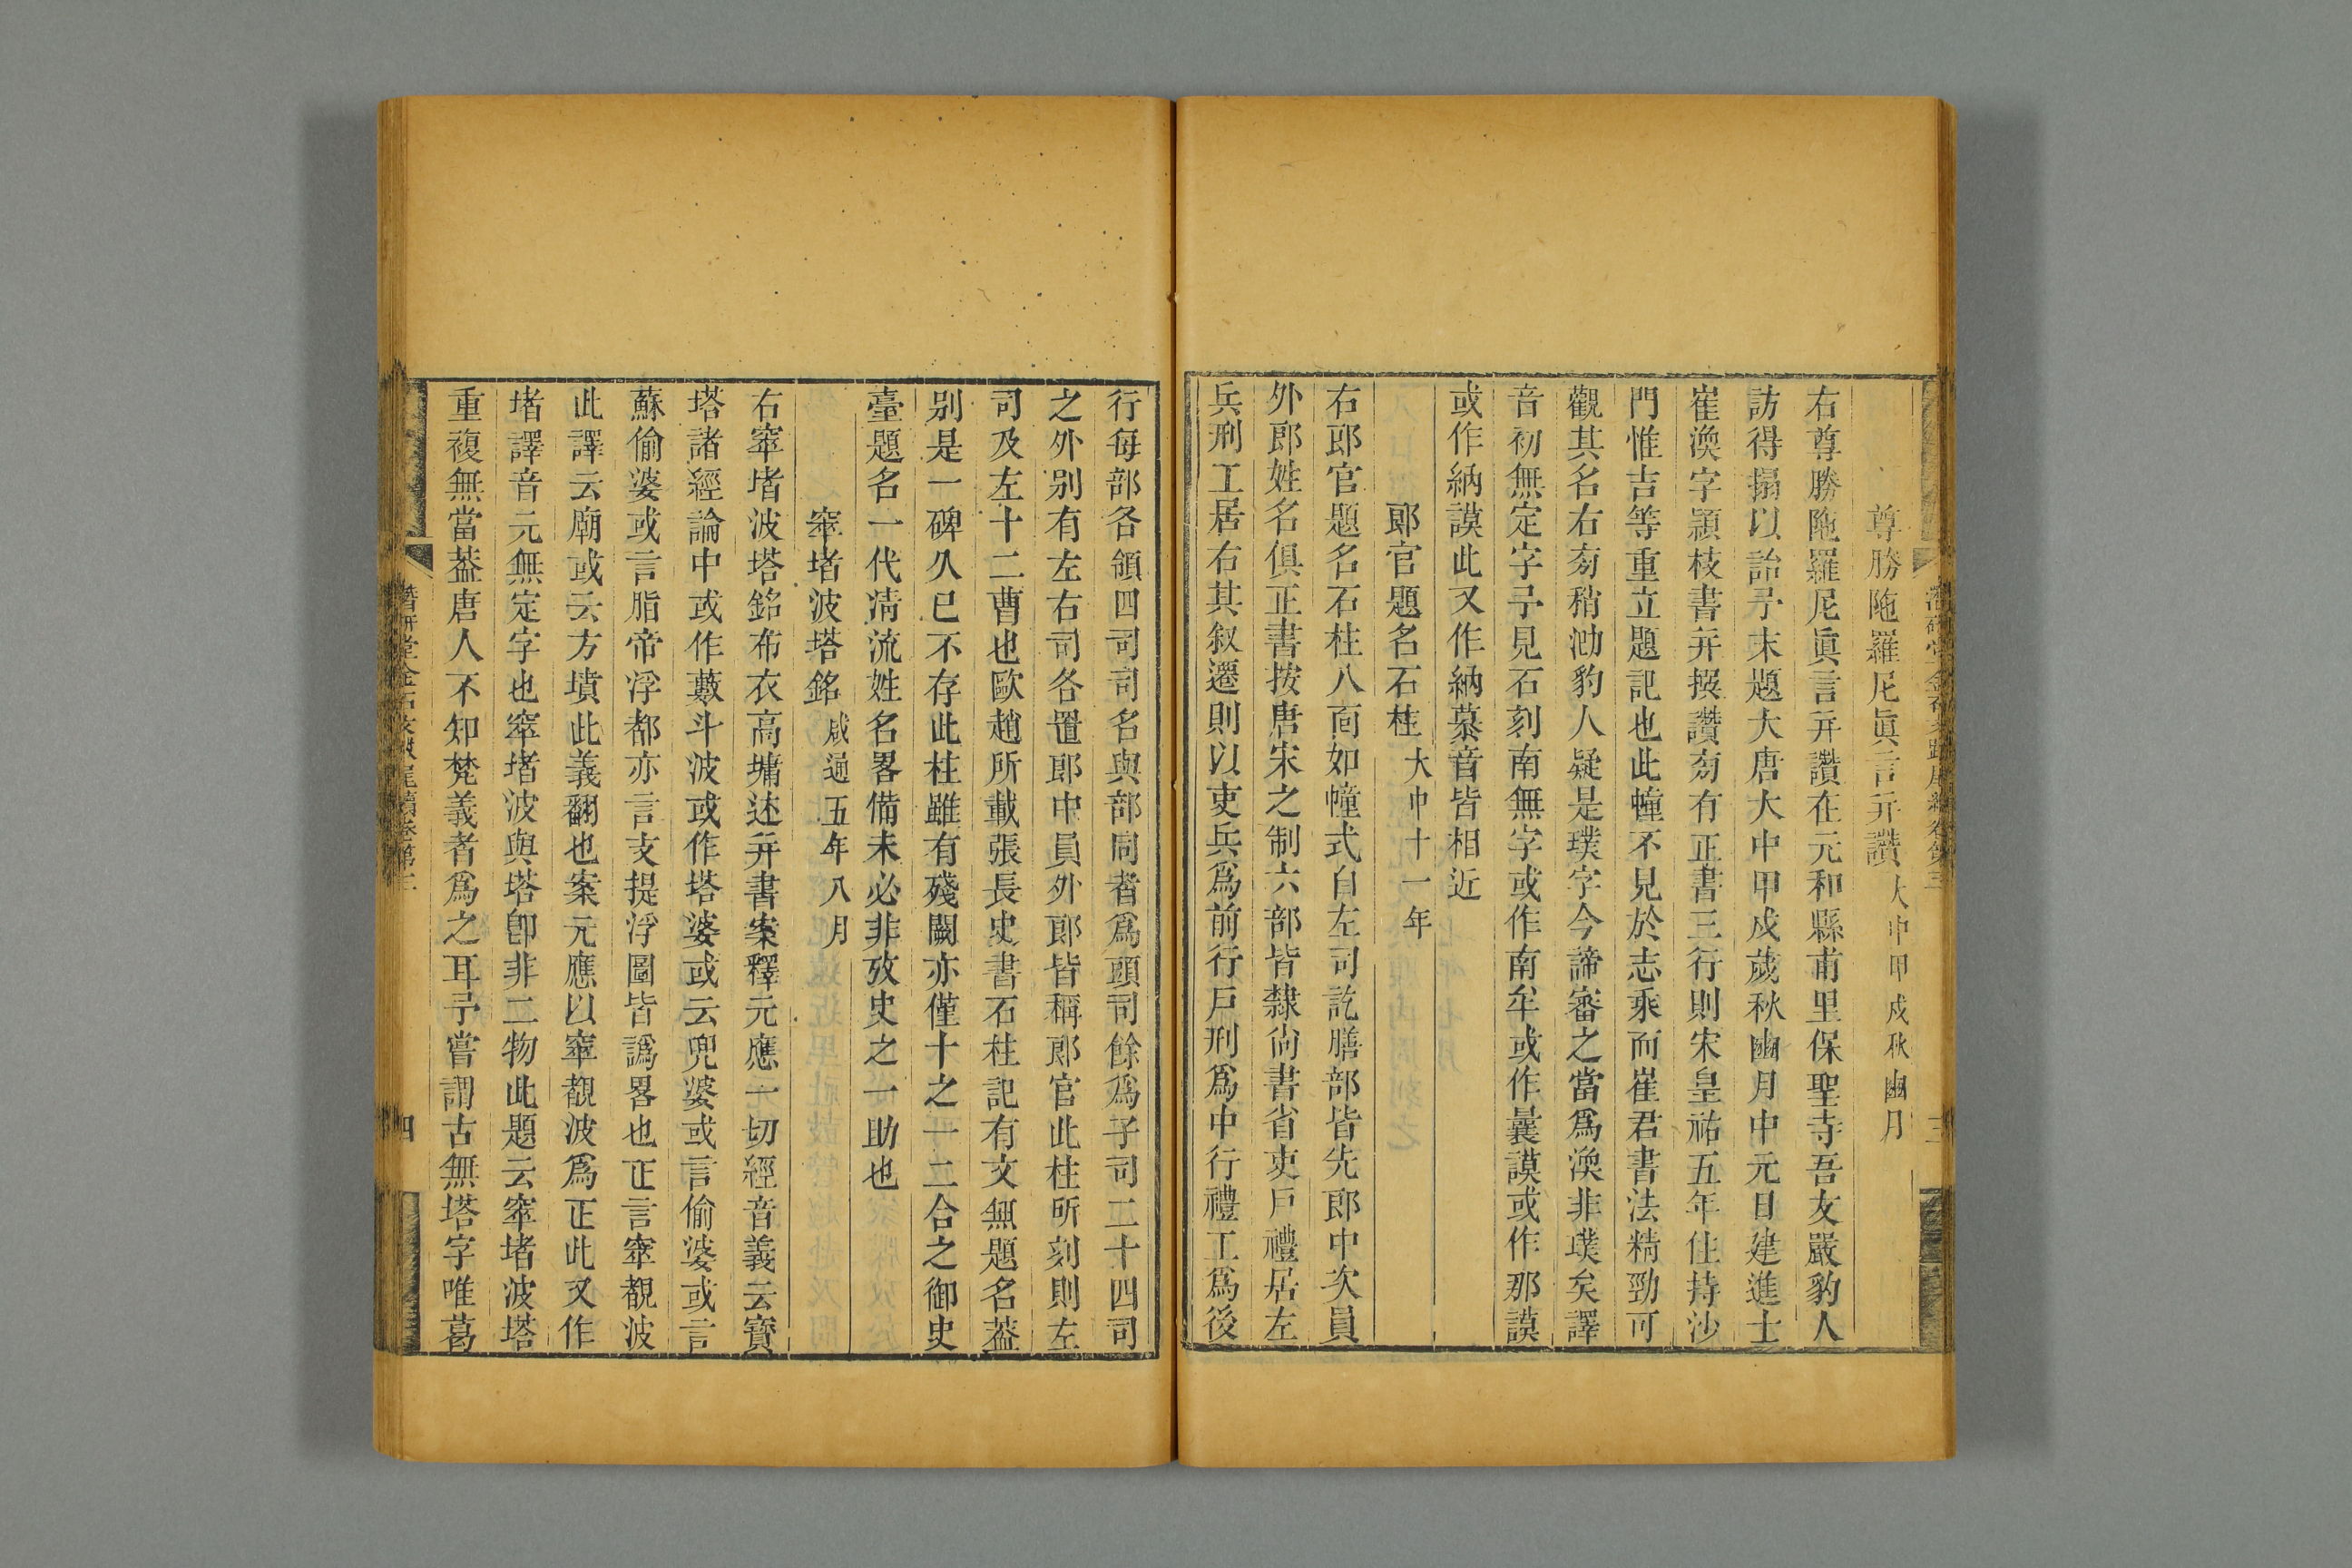 尊勝陁羅尼眞言幷讚大中甲戍秋豳月
右尊勝陁羅尼眞言幷讚在元和縣甫里保聖寺吾友嚴豹人
訪得搨以詒予末題大唐大中甲戍歲秋豳月中元日建進士
崔渙字頴枝書幷撰讚㫄有正書三行則宋皇祐五年住持沙
門惟吉等重立題記也此幢不見於志乘而崔君書法精勁可
觀其名右㫄稍泐豹人疑是璞字今諦審之當爲渙非璞矣譯
音初無定字予見石刻南無字或作南牟或作曩謨或作那謨
或作納謨此又作納慕音皆相近
郞官題名石柱大中十一年
右郞官題名石柱八面如幢式自左司訖膳部皆先郞中次員
外郞姓名俱正書按唐宋之制六部皆隸尙書省吏戶禮居左
兵刑工居右其敘遷則以吏兵爲前行戶刑爲中行禮工爲後
行每部各領四司司名與部同者爲頭司餘爲子司二十四司
之外別有左右司各置郞中員外郞皆稱郞官此柱所刻則左
司及左十二曹也歐趙所載張長史書石柱記有文無題名葢
别是一碑久已不存此柱雖有殘闕亦僅十之一二合之御史
臺題名一代淸流姓名畧備未必非攷史之一助也
窣堵波塔銘咸通五年八月
右窣堵波塔銘布衣高墉述幷書案釋元應一切經音義云寶
塔諸經論中或作藪斗波或作塔婆或云兜婆或言偷婆或言
蘇偷婆或言脂帝浮都亦言支提浮圖皆譌畧也正言窣覩波
此譯云廟或云方墳此義翻也案元應以窣覩波爲正此又作
堵譯音元無定字也窣堵波與塔卽非二物此題云窣堵波塔
重複無當葢唐人不知梵義者爲之耳予嘗謂古無塔字唯葛
潛研堂金石文跋尾續卷第三
四